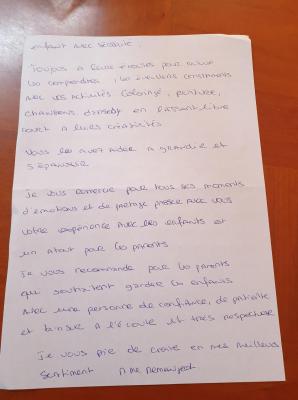 enfant avec sécurité.
Toujours à leurs écoutes pour mieux
les comprendres, les éveillans constamments
avec des activités coloriage, peinture,
chansons, dansés, en laissant libre
court a leurs créativités
Vous les avez aider a grandir et
s'épanouir
Je vous remercie pour tous ses moments
d'émotions et de partage passée avec vous
votre expérience avec les enfants est
un atout pour les parents
Je vous recommande pour les parents
qui souhaitent garder les enfants
avec une personne de confiance, de patiente
et bonne a l'écoute et très respectueuse
Je vous prie de croire en mes meilleurs
sentiment Mme